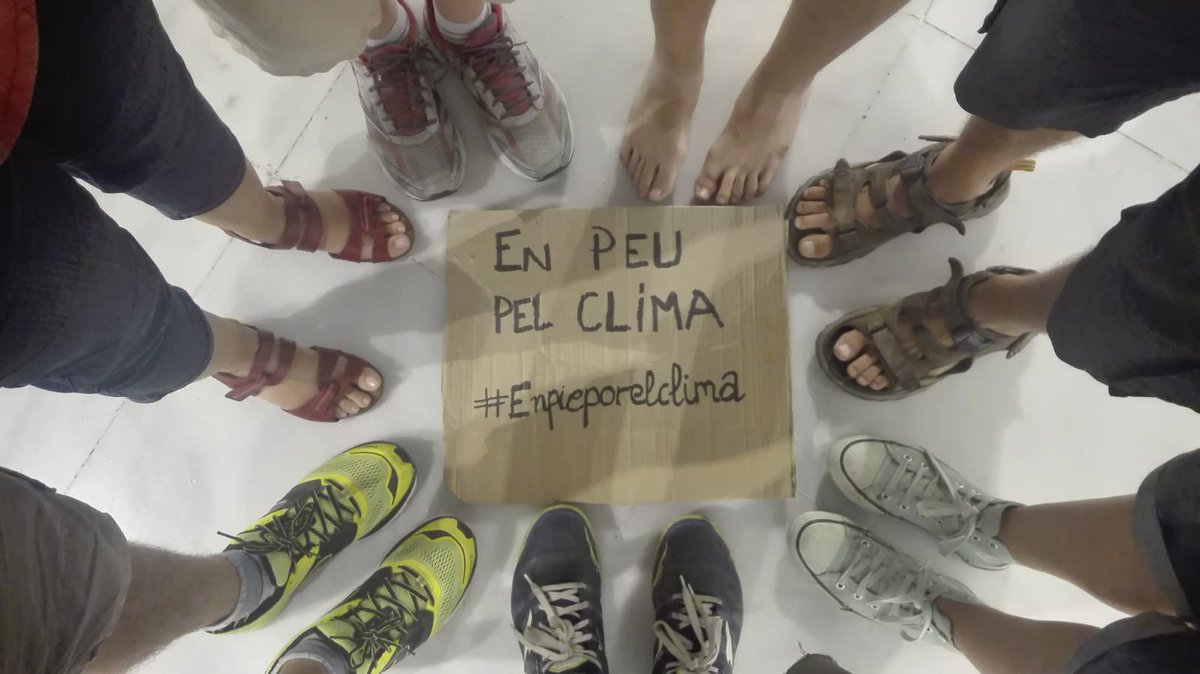 EN PEU
PEL CLIMA
#Enpieporelclima